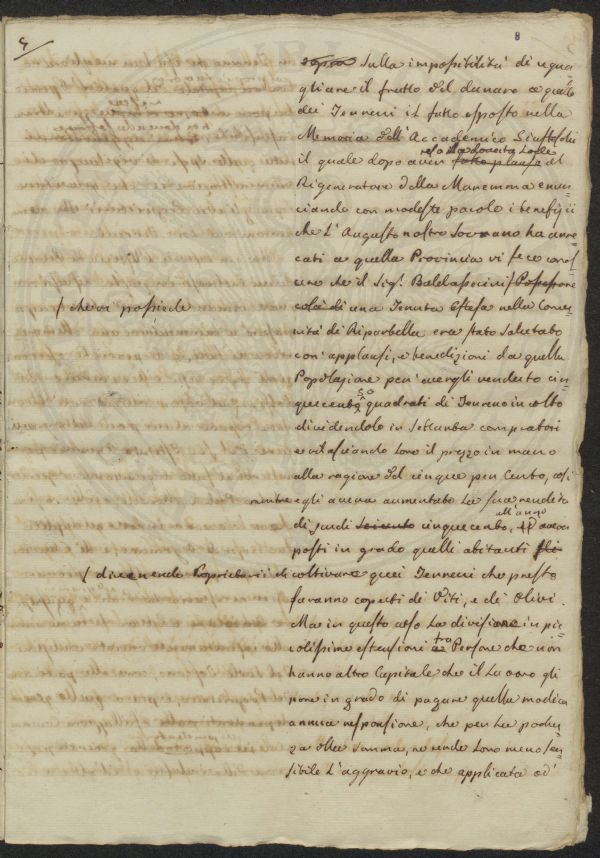 8
4
sopra sulla impossibilità di egua-
gliare il frutto del danaro a quello
dei Terreni il fatto esposto nella
Memoria dell'Accademico
resa la dovuta lode
il quale dopo aver fatto plauso al
Rigeneratore della Maremma enun-
ciando con modeste parole i benefizii
che l'Augusto nostro Sovrano ha arre-
cati a quella Provincia vi fece
che il Sig.r Baldasserini / Possessore
/ che vi possiede
colà di una Tenuta Estesa nella Comu-
nità di Riparbella era stato salutato
con applausi, e benedizioni da quella
Popolazione per avergli venduto cin-
quecento quadrati di Terreno incolto
dividendolo in settanta compratori
e rilasciando loro il prezzo in mano
alla ragione del cinque per cento, così
mentre egli aveva aumentato la sua rendita
all'anno
di scudi seicento cinquecento, aveva
posti in grado quelli abitanti
/ divenendo Proprietarii di coltivare quei Terreni che presto
saranno coperti di Viti, e di Olivi.
Ma in questo caso la divisione in pic-
colissime estensioni tra Persone che non
hanno altro Capitale che il Lavoro gli
pone in grado di pagare quella modica
annua responsione, che per la pochez-
za della somma, ne rende loro meno sen-
sibile l'aggravio, e che applicata ad